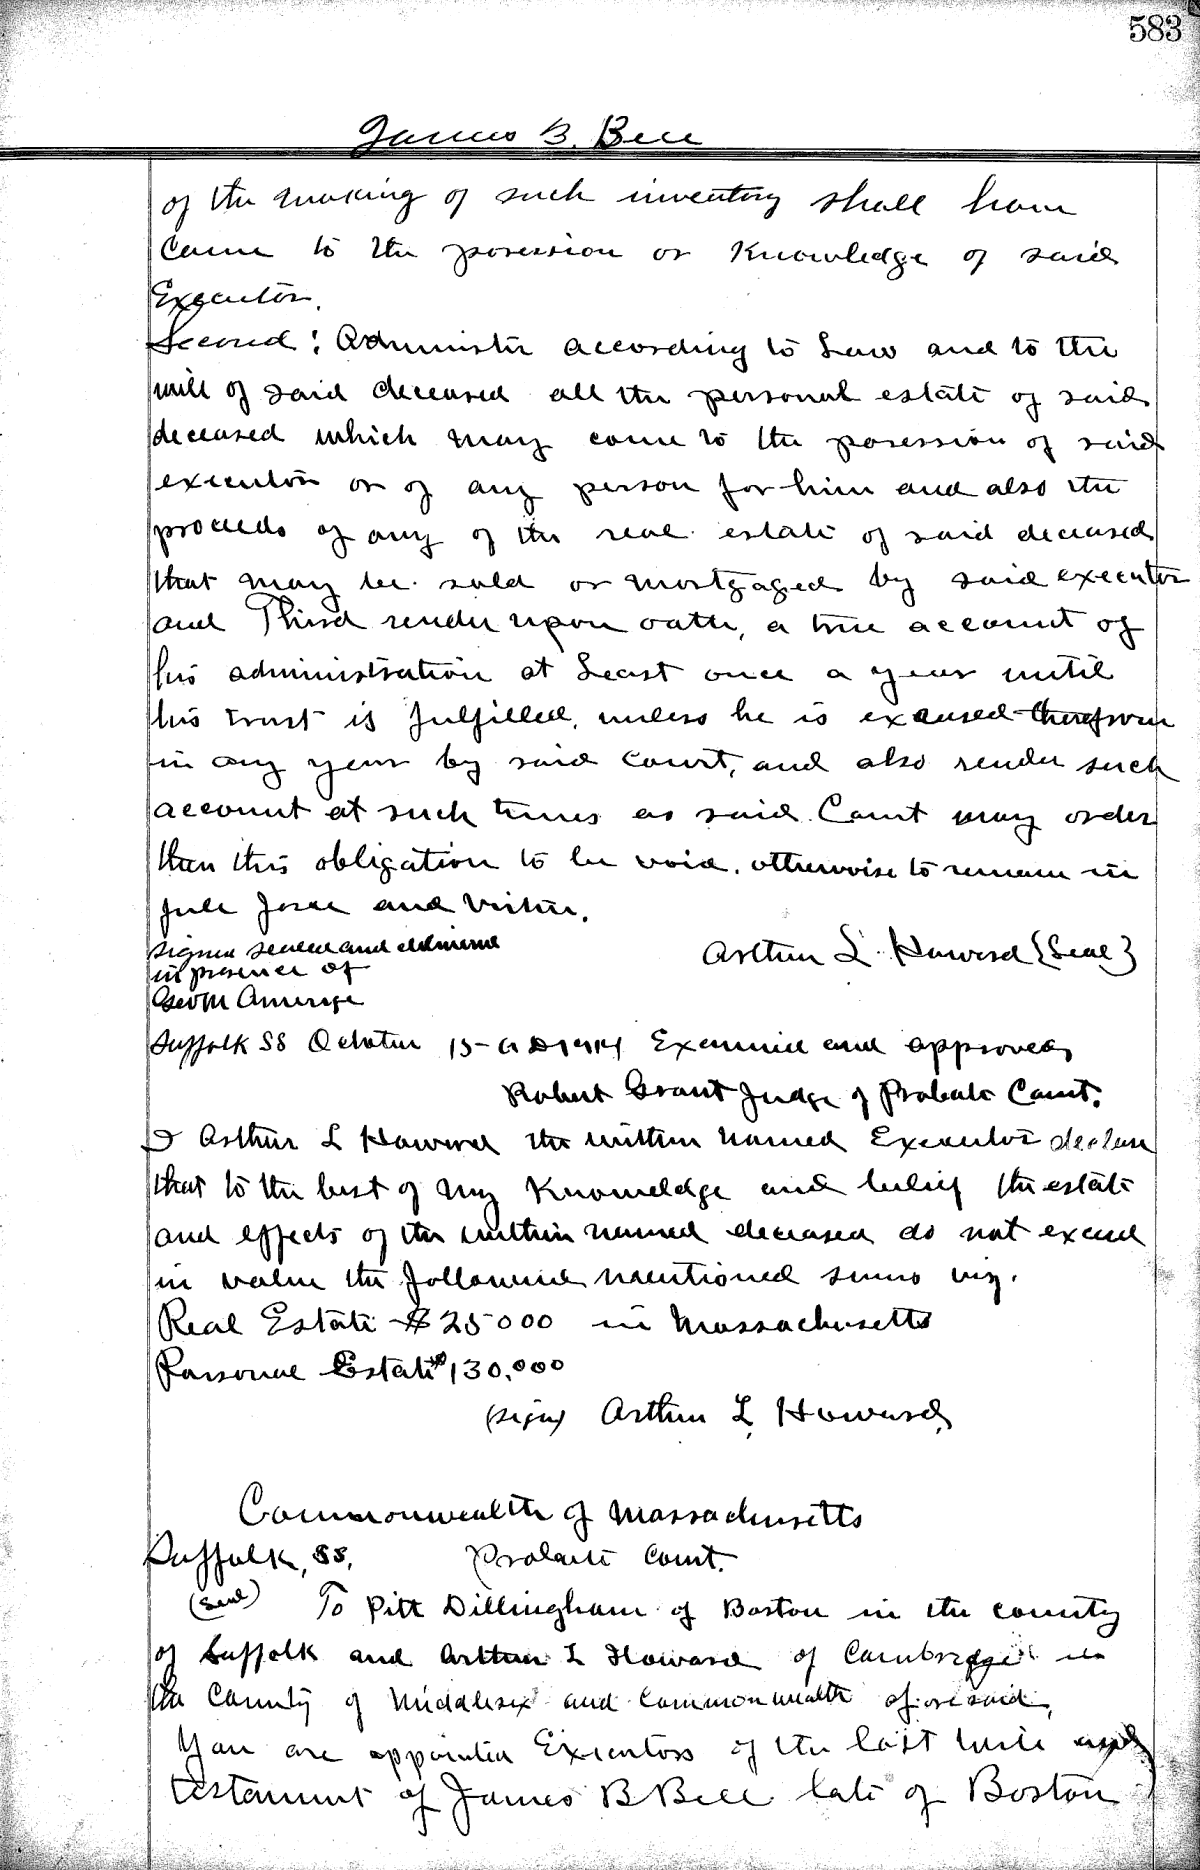 583
James B. Bell
of the making of such inventory shall have
came to the posession or Knowledge of said
Executor.
Second: Administer according to Law and to the
will of said deceased all the personal estate of said
deceased which may come to the posession of said
executor or of any person for him and also the
proceeds of any of the real estate of said deceased
that may be sold or mortgaged by said executor
and Third render upon oath, a true account of
his administration at Least once a year until
his trust is fulfilled, unless he is excused therefrom
in any year by said Court, and also render such
account at such times as said Court may order
then this obligation to be void. otherwise to remain in
full force and virtue.
signed sealed and delivered
in presence of
Geo M Amerige
Arthur L. Howard {Seal}
Suffolk SS October 15 - A D 1914 Examined and approved,
Robert Grant Judge of Probate Court.
I Arthur L Howard the within named Executor declare
that to the best of my Knowledge and belief the estate
and effects of the within named deceased do not exceed
in value the following mentioned sums viz.
Real Estate $25000 in Massachusetts
Personal Estate $130,000
(sign) Arthur L. Howard,
Commonwealth of Massachusetts
Suffolk, SS, Probate Court.
(Seal) To Pitt Dillingham of Boston in the county
of Suffolk and Arthur L Howard of Cambridge in
the County of Middlesex and Commonwealth aforesaid,
You are appointed Executors of the last will and
testament of James B Bell late of Boston